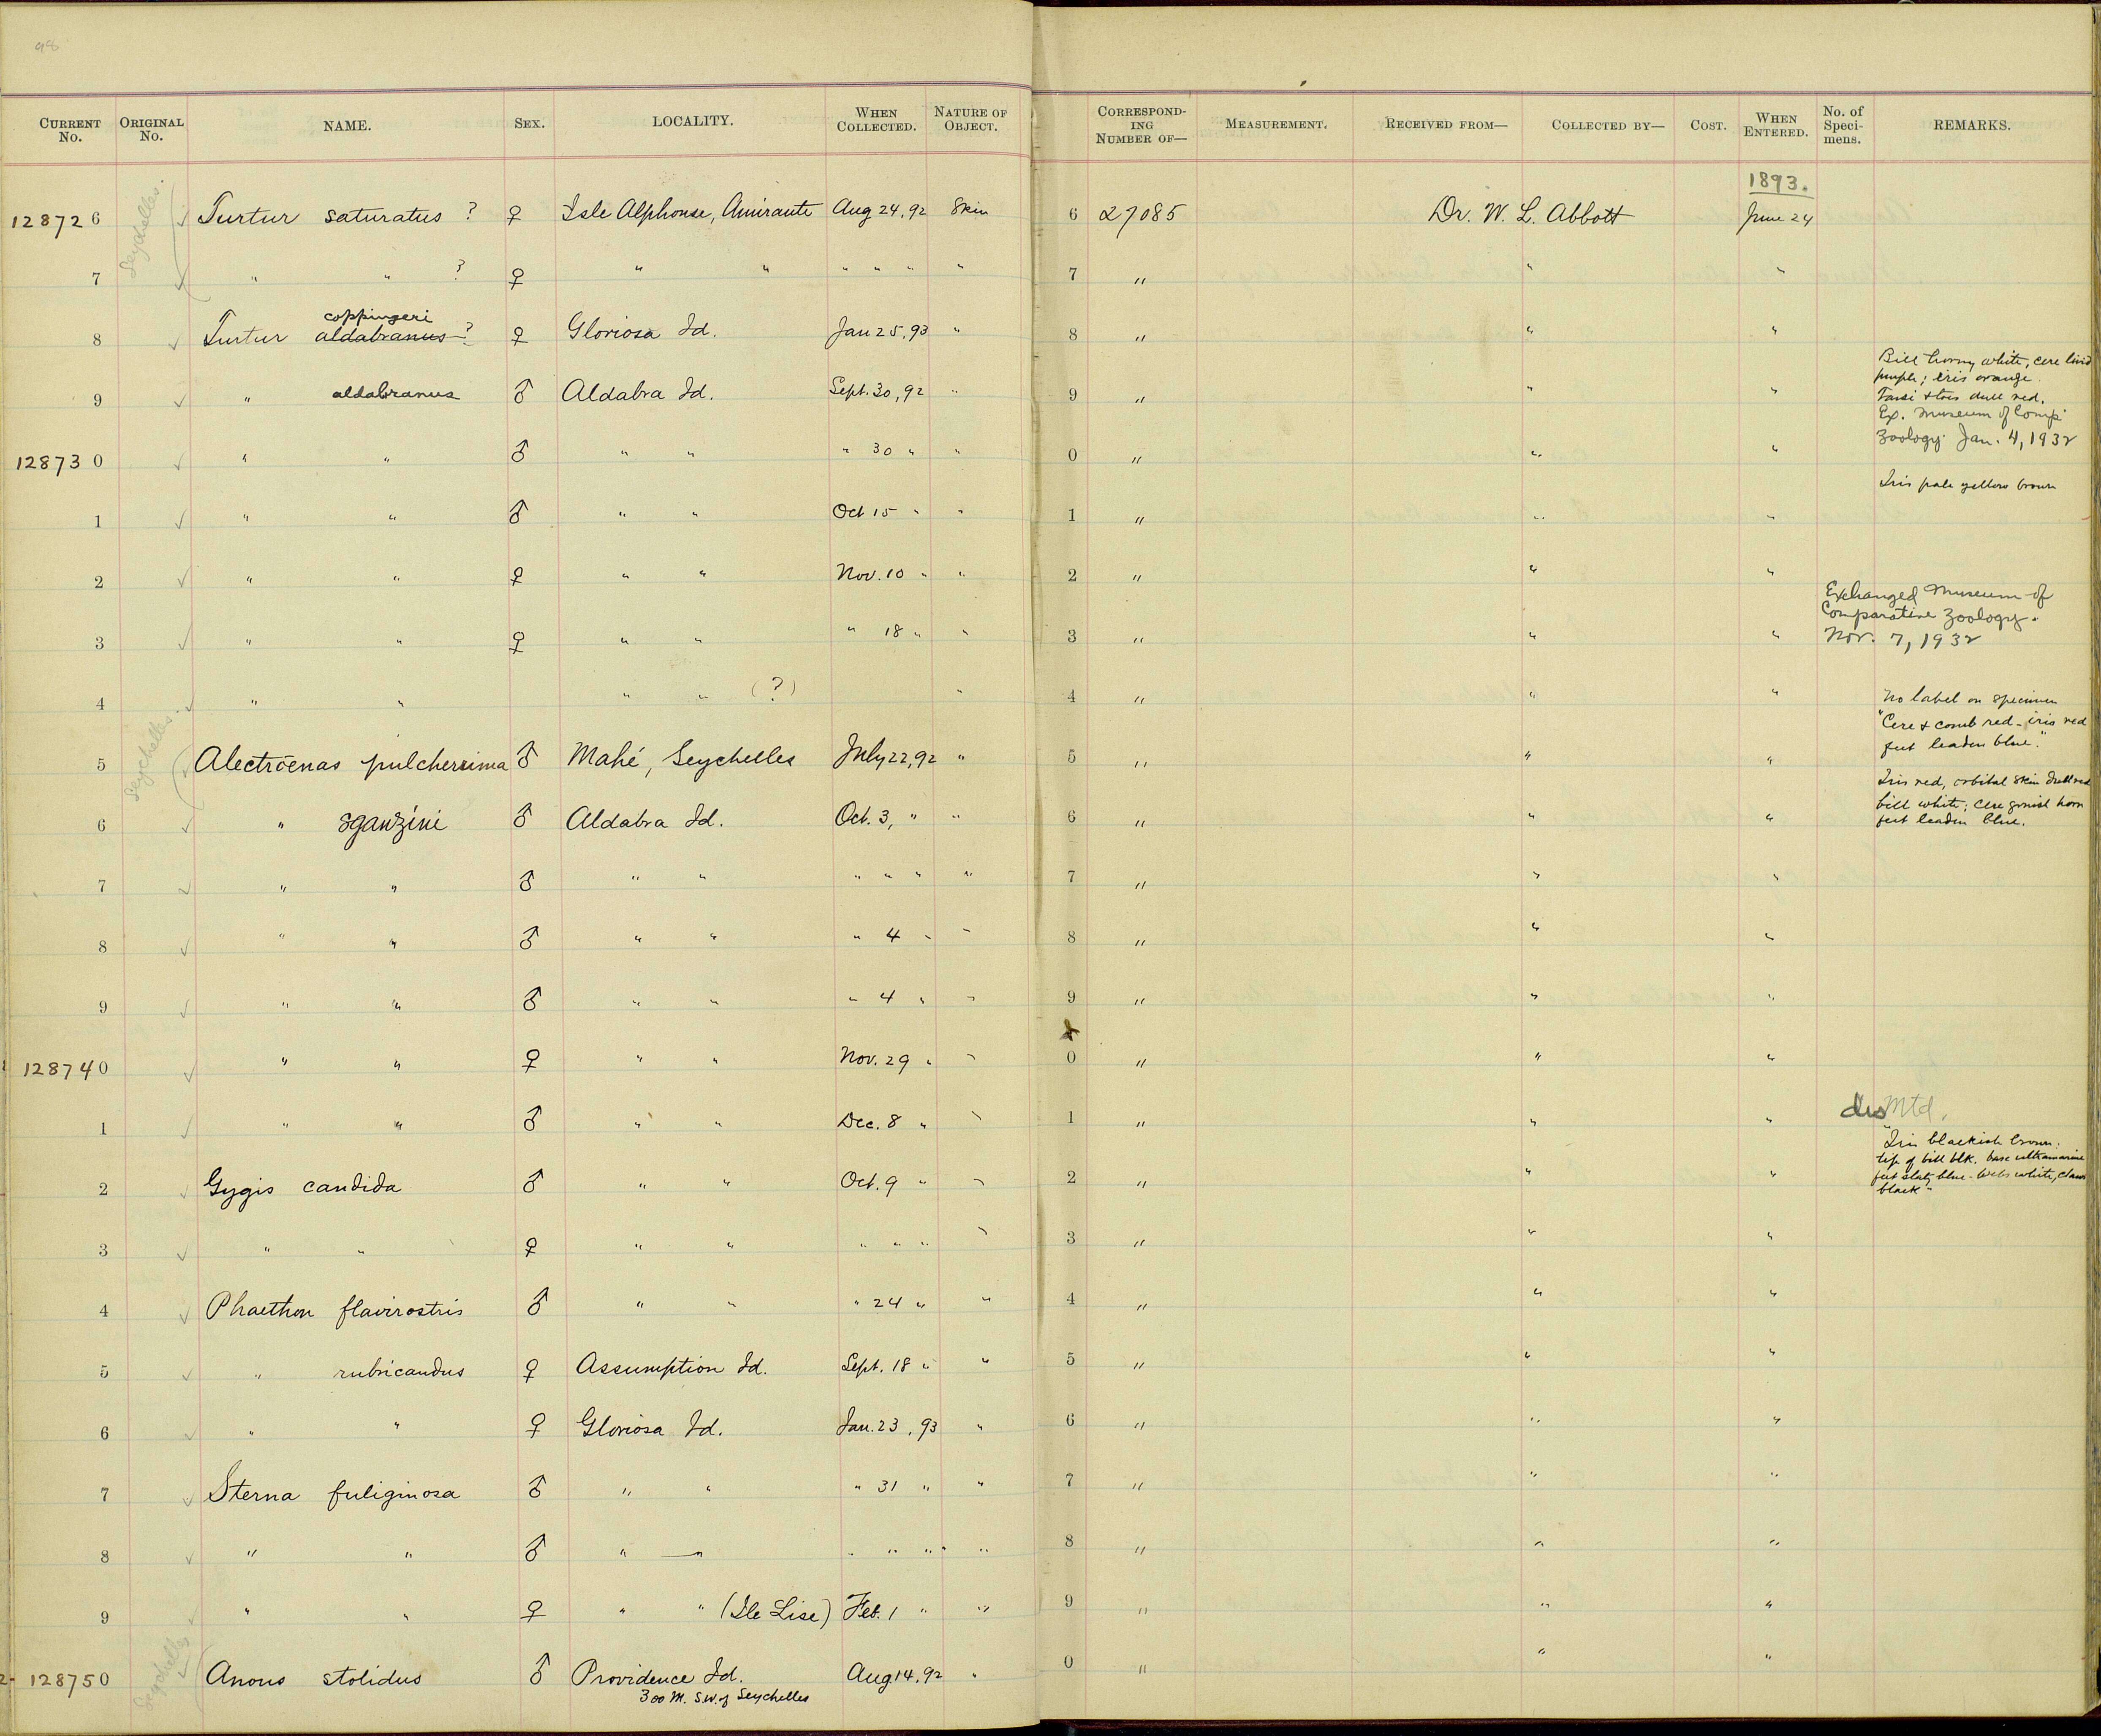 98
CURRENT No. ORIGINAL No. NAME. SEX. LOCALITY. WHEN COLLECTED. NATURE OF OBJECT. CORRESPONDING NUMBER OF— MEASUREMENT. RECEIVED FROM— COLLECTED BY— COST. WHEN ENTERED. No. of Specimens. REMARKS.
1893.
128726 Seychelles. Turtur saturatus ? ♀ Isle Alphonse, Amirante Aug 24, 92 Skin 6 27085 Dr. W. L. Abbott June 24
7 " " ? ♀ " " " " " " 7 " " "
8 Turtur coppingeri aldabranus ? ♀ Gloriosa Id. Jan 25, 93 " 8 " " "
9 " aldabranus ♂ Aldabra Id. Sept. 30, 92 " 9 " " " Bill horny white, cere livid
purple; iris orange.
Tarsi & toes dull red.
Ex. Museum of Comp.
128730 " " ♂ " " " 30 " " 0 " " " Zoology. Jan. 4, 1932
Iris pale yellow brown
1 " " ♂ " " Oct 15 " " 1 " " "
2 " " ♀ " " Nov. 10 " " 2 " " "
Exchanged Museum of
Comparative Zoology.
3 " " ♀ " " " 18 " " 3 " " " Nov. 7, 1932
4 " " " " (?) " 4 " " " No label on specimen
"Cere & comb red - iris red
feet leaden blue."
5 Seychelles. Alectroenas pulcherrima ♂ Mahé, Seychelles July 22, 92 " 5 " " "
Iris red, orbital skin dull red
bill white; cere horn
6 " sganzini ♂ Aldabra Id. Oct. 3, " " 6 " " " feet leaden blue.
7 " " ♂ " " " " " " 7 " " "
8 " " ♂ " " " 4 " " 8 " " "
9 " " ♂ " " " 4 " " 9 " " "
128740 " " ♀ " " Nov. 29 " " 0 " " "
1 " " ♂ " " Dec. 8 " " 1 " " " dis Mtd.
"Iris blackish brown.
tip of bill blk. base ultramarine
2 Gygis candida ♂ " " Oct. 9 " " 2 " " " feet slaty blue - webs white, claws
black"
3 " " ♀ " " " " " " 3 " " "
4 Phaethon flavirostris ♂ " " " 24 " " 4 " " "
5 " rubricaudus ♀ Assumption Id. Sept. 18 " " 5 " " "
6 " " ♀ Gloriosa Id. Jan. 23, 93 " 6 " " "
7 Sterna fuliginosa ♂ " " " 31 " " 7 " " "
8 " " ♂ " " " " " " 8 " " "
9 " " ♀ " " (Ile Lise) Feb. 1 " " 9 " " "
128750 Seychelles Anous stolidus ♂ Providence Id. Aug. 14, 92 " 0 " " "
300 M. S.W. of Seychelles